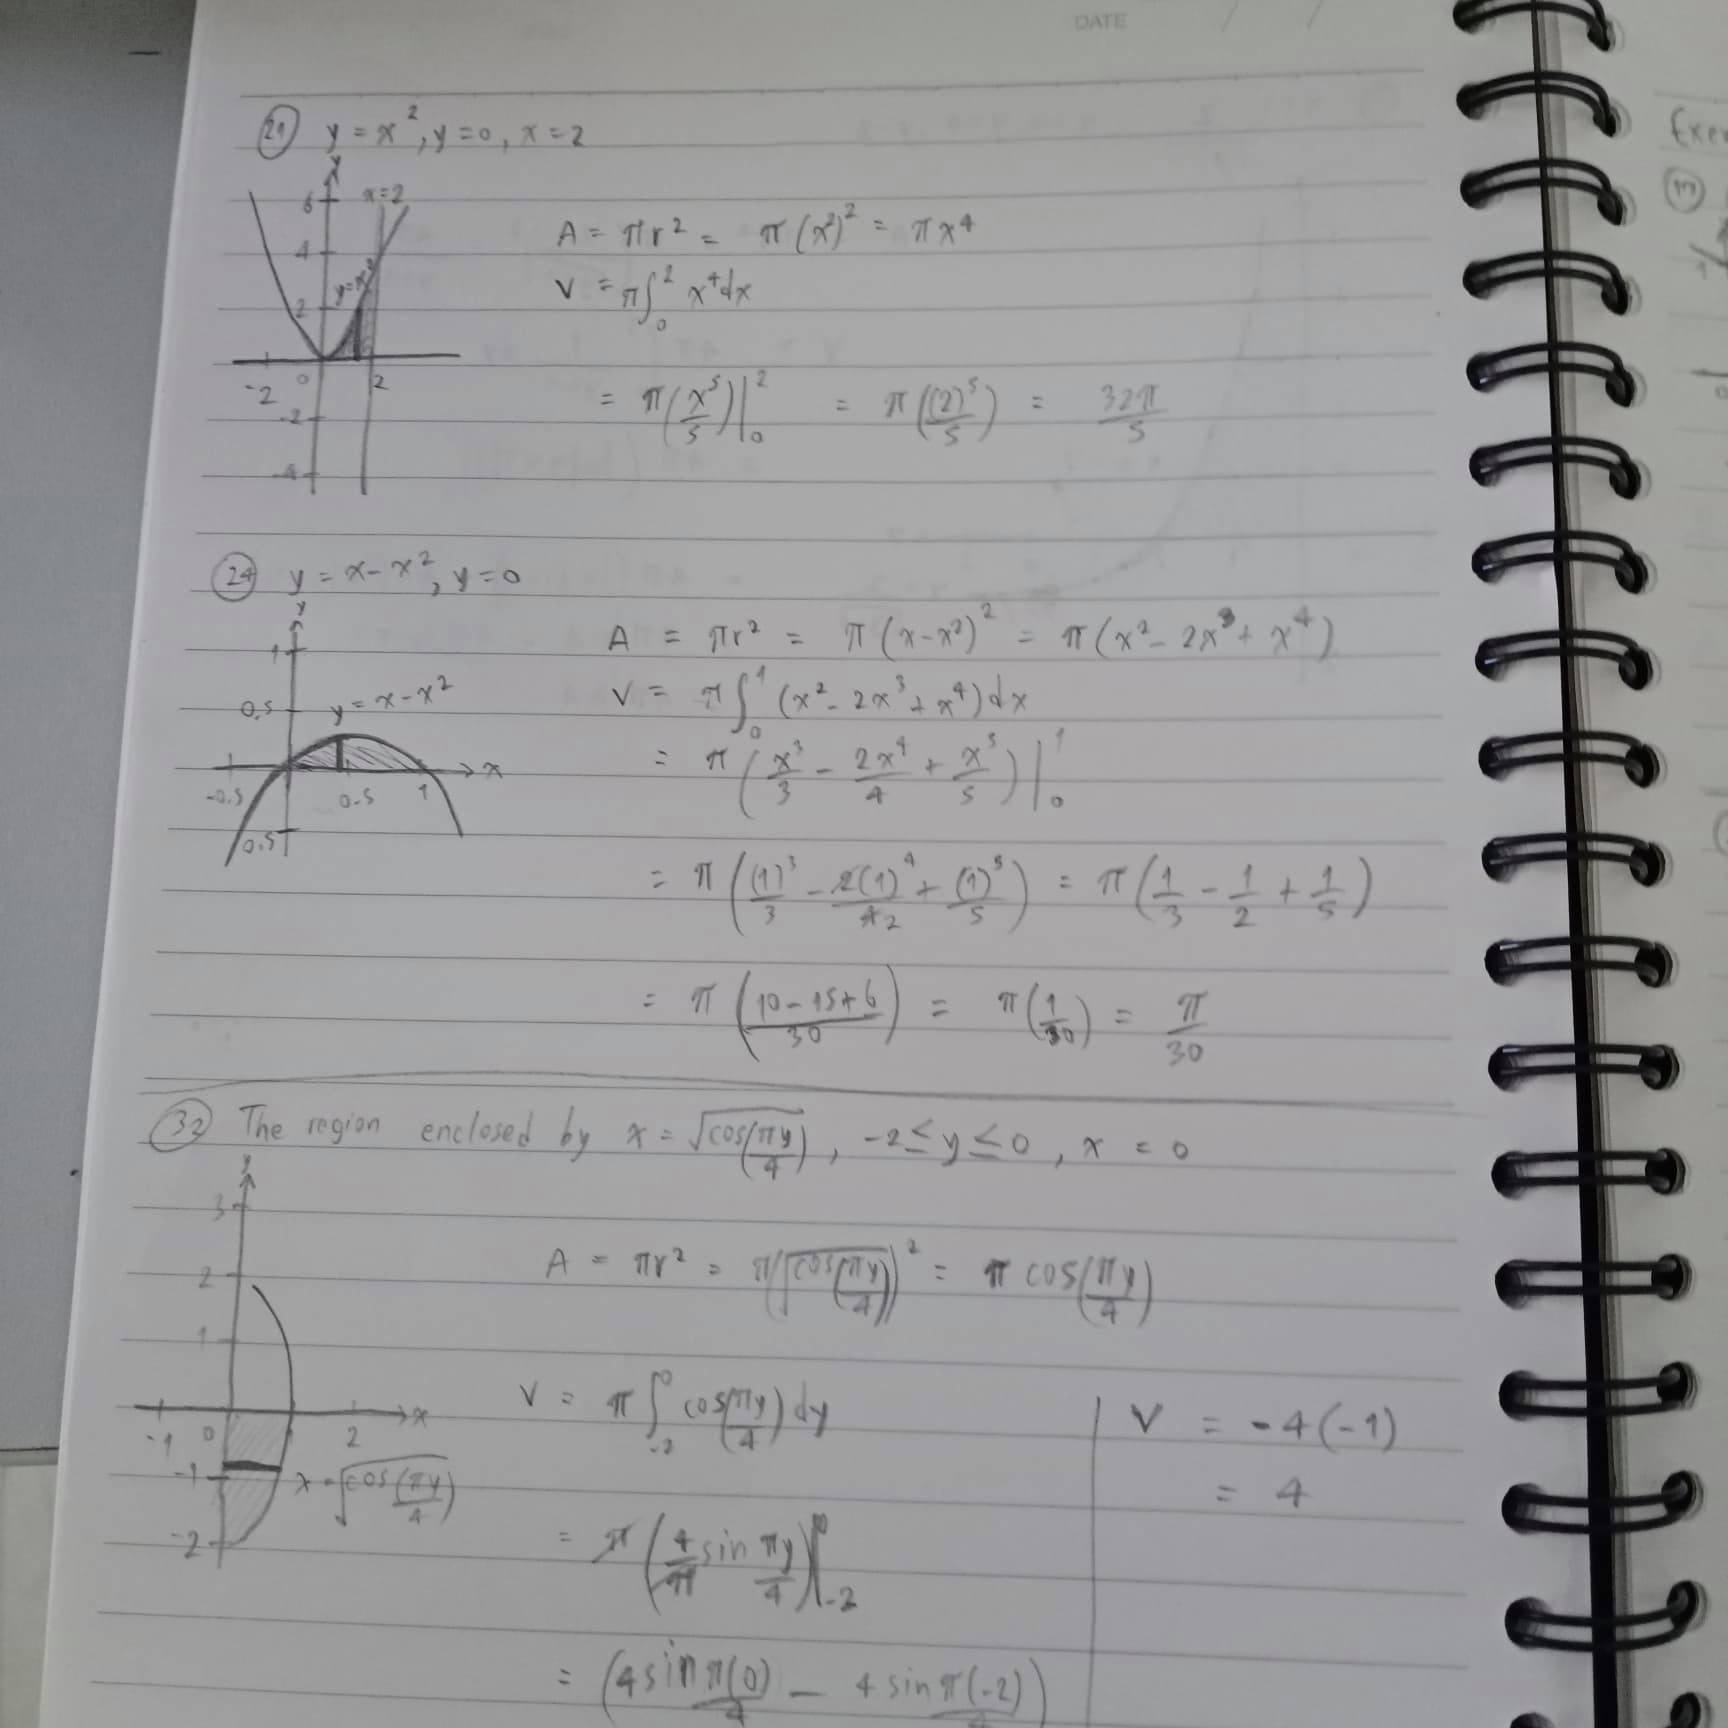 DATE / /
(21) y = x², y = 0, x = 2
y
6 x=2
4 y=x²
2
-2 0 2
-2
-4
A = πr² = π(x²)² = πx⁴
V = π∫₀² x⁴dx
= π(x⁵/5)|₀² = π((2)⁵/5) = 32π/5
(24) y = x - x², y = 0
y
1
0.5 y = x - x²
x
-0.5 0.5 1
0.5
A = πr² = π(x-x²)² = π(x² - 2x³ + x⁴)
V = π∫₀¹ (x² - 2x³ + x⁴)dx
= π(x³/3 - 2x⁴/4 + x⁵/5)|₀¹
= π((1)³/3 - 2(1)⁴/42 + (1)⁵/5) = π(1/3 - 1/2 + 1/5)
= π((10-15+6)/30) = π(1/30) = π/30
(32) The region enclosed by x = √cos(πy/4), -2 ≤ y ≤ 0, x = 0
y
3
2
1
x
-1 0 2
-1 x = √cos(πy/4)
-2
A = πr² = π(√cos(πy/4))² = π cos(πy/4)
V = π∫₋₂⁰ cos(πy/4)dy
= π(4/π sin πy/4)|₋₂⁰
= (4 sin π(0)/4 - 4 sin π(-2)/4)
V = -4(-1)
= 4